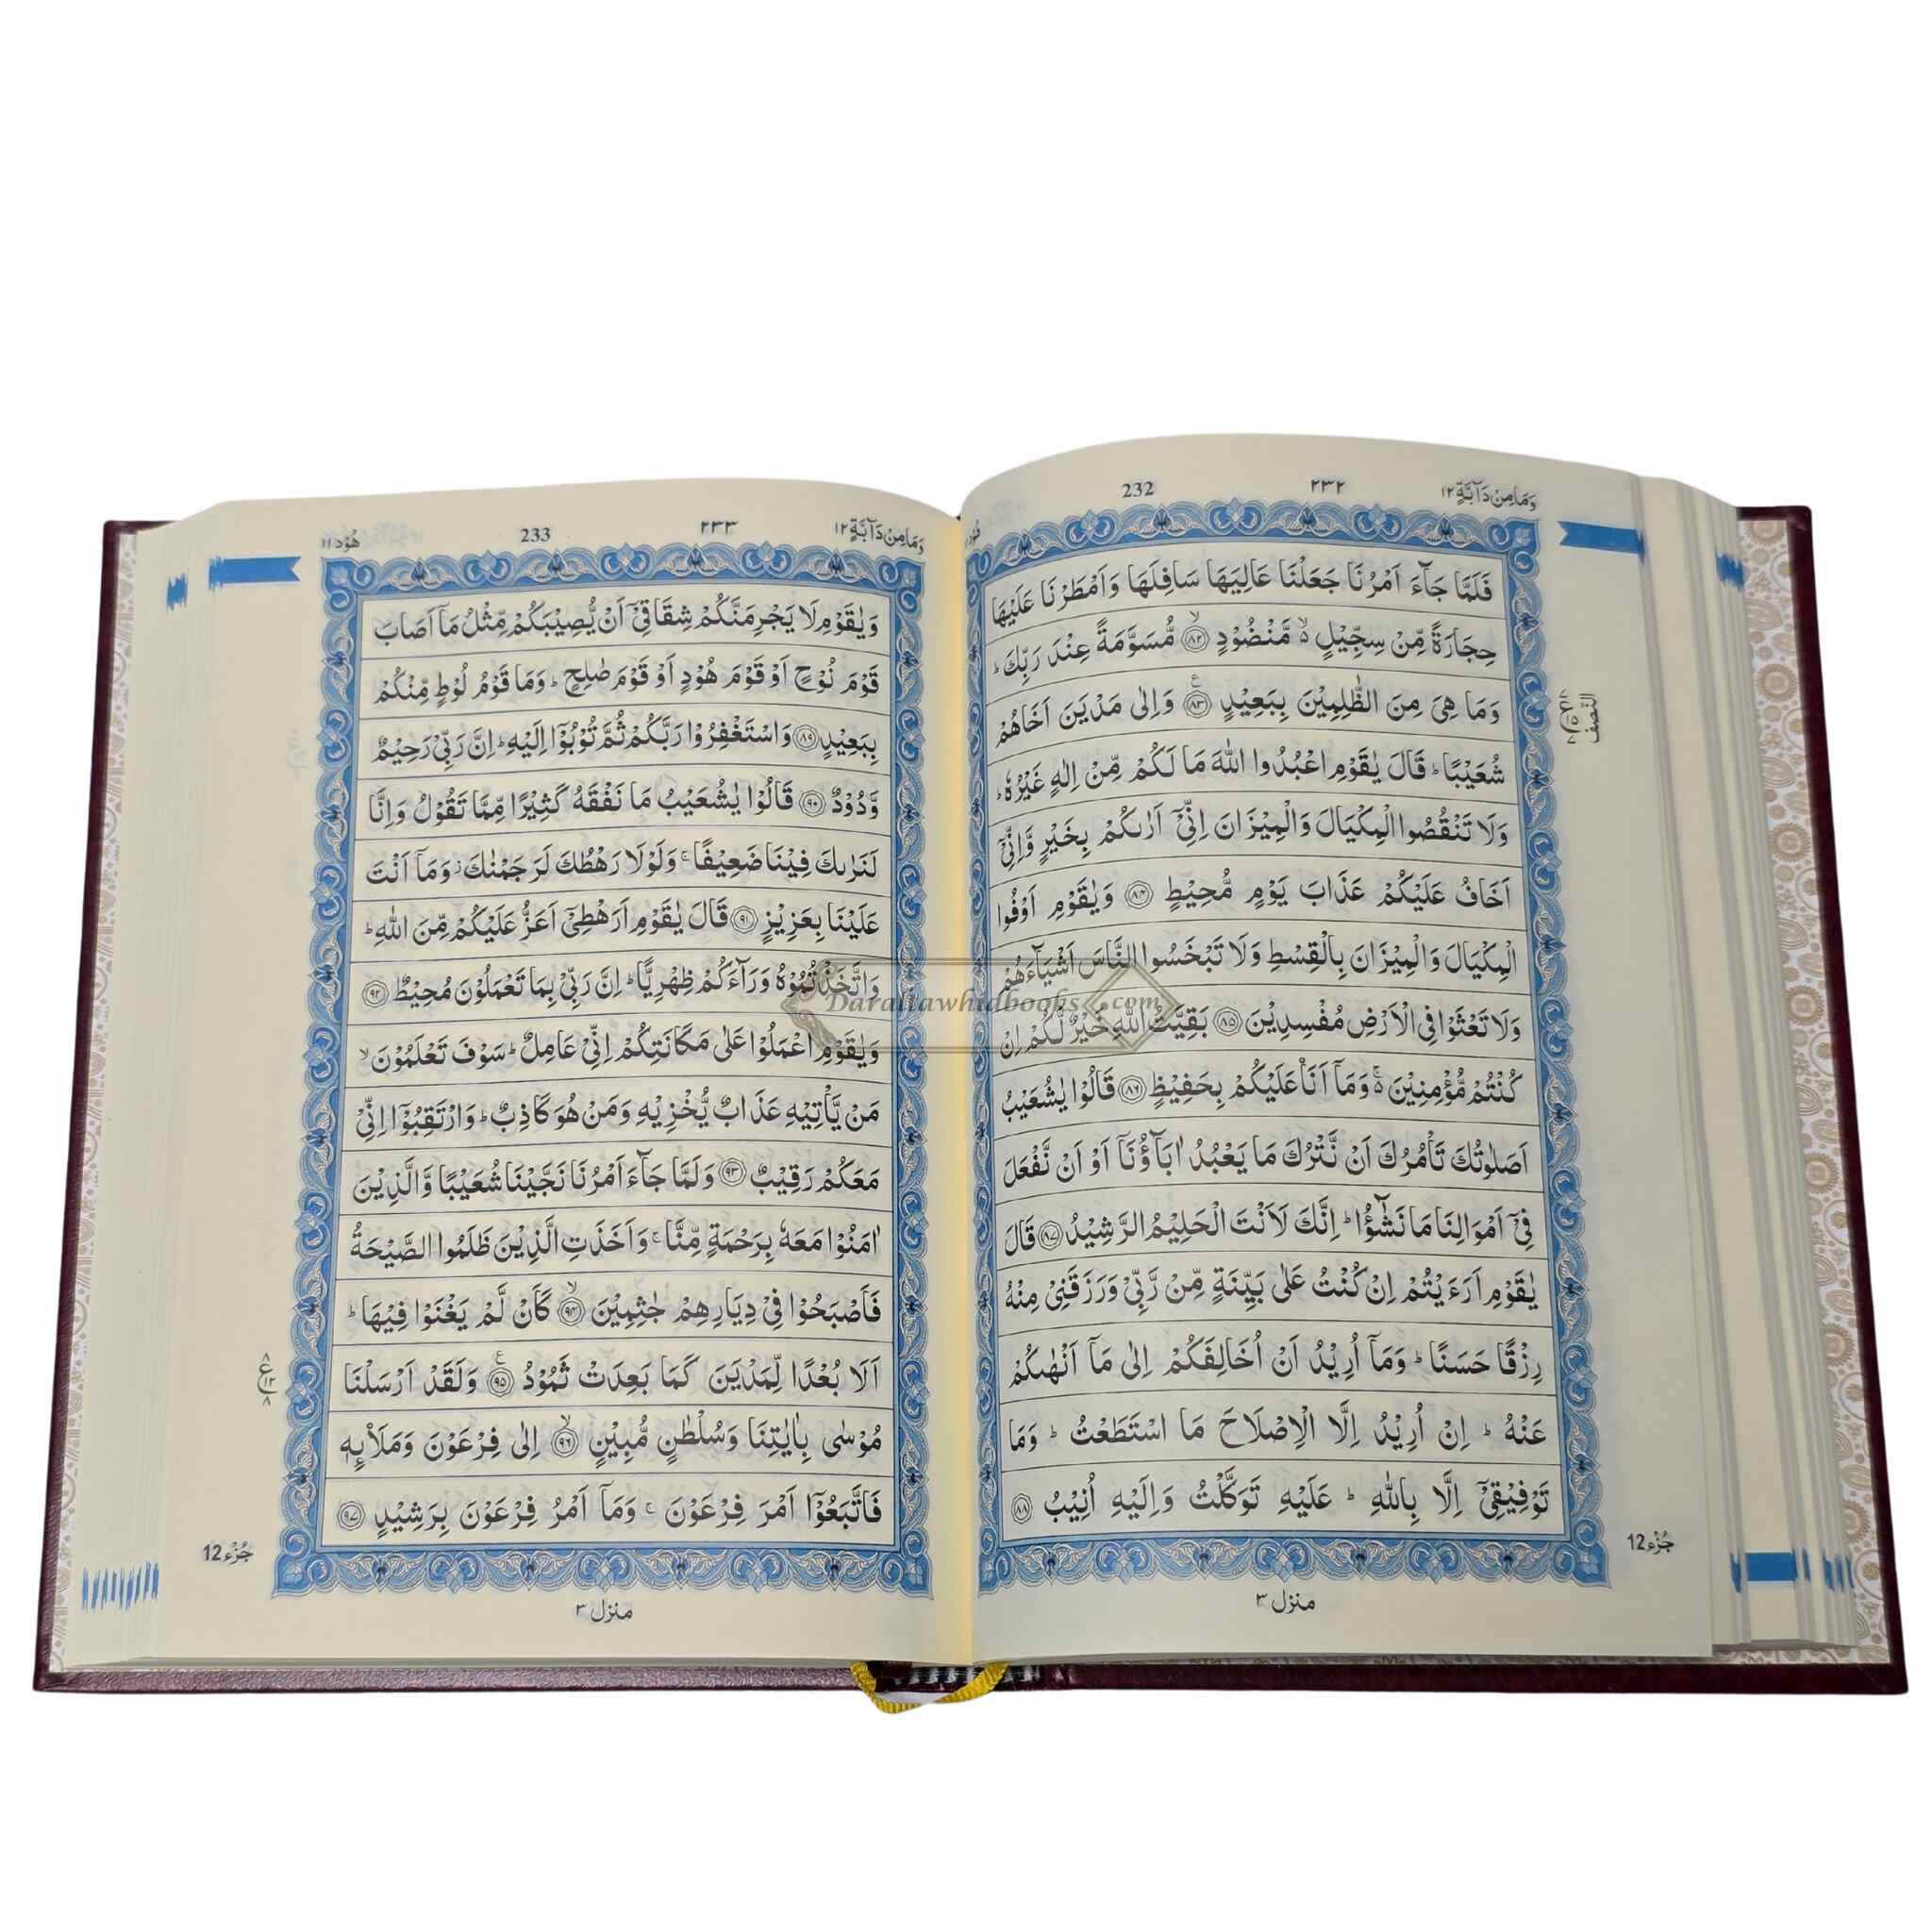 وَمَا مِنْ دَآبَّةٍ ١٢ ٢٣٢ 232
فَلَمَّا جَآءَ اَمْرُنَا جَعَلْنَا عَالِيَهَا سَافِلَهَا وَاَمْطَرْنَا عَلَيْهَا
حِجَارَةً مِّنْ سِجِّيْلٍ ۙ۬ مَّنْضُوْدٍ ۙ﴿٨٢﴾ مُّسَوَّمَةً عِنْدَ رَبِّكَ ؕ
وَمَا هِىَ مِنَ الظّٰلِمِيْنَ بِبَعِيْدٍ ﴿٨٣﴾ع وَاِلٰى مَدْيَنَ اَخَاهُمْ
شُعَيْبًا ؕ قَالَ يٰقَوْمِ اعْبُدُوا اللّٰهَ مَا لَكُمْ مِّنْ اِلٰهٍ غَيْرُهٗ ؕ
وَلَا تَنْقُصُوا الْمِكْيَالَ وَالْمِيْزَانَ اِنِّىْۤ اَرٰىكُمْ بِخَيْرٍ وَّاِنِّىْۤ
اَخَافُ عَلَيْكُمْ عَذَابَ يَوْمٍ مُّحِيْطٍ ﴿٨٤﴾ وَيٰقَوْمِ اَوْفُوا
الْمِكْيَالَ وَالْمِيْزَانَ بِالْقِسْطِ وَلَا تَبْخَسُوا النَّاسَ اَشْيَآءَهُمْ
وَلَا تَعْثَوْا فِى الْاَرْضِ مُفْسِدِيْنَ ﴿٨٥﴾ بَقِيَّتُ اللّٰهِ خَيْرٌ لَّكُمْ اِنْ
كُنْتُمْ مُّؤْمِنِيْنَ ۬ۚ وَمَاۤ اَنَا عَلَيْكُمْ بِحَفِيْظٍ ﴿٨٦﴾ قَالُوْا يٰشُعَيْبُ
اَصَلٰوتُكَ تَاْمُرُكَ اَنْ نَّتْرُكَ مَا يَعْبُدُ اٰبَآؤُنَاۤ اَوْ اَنْ نَّفْعَلَ
فِىْۤ اَمْوَالِنَا مَا نَشٰٓؤُا ؕ اِنَّكَ لَاَنْتَ الْحَلِيْمُ الرَّشِيْدُ ﴿٨٧﴾ قَالَ
يٰقَوْمِ اَرَءَيْتُمْ اِنْ كُنْتُ عَلٰى بَيِّنَةٍ مِّنْ رَّبِّىْ وَرَزَقَنِىْ مِنْهُ
رِزْقًا حَسَنًا ؕ وَمَاۤ اُرِيْدُ اَنْ اُخَالِفَكُمْ اِلٰى مَاۤ اَنْهٰىكُمْ
عَنْهُ ؕ اِنْ اُرِيْدُ اِلَّا الْاِصْلَاحَ مَا اسْتَطَعْتُ ؕ وَمَا
تَوْفِيْقِىْۤ اِلَّا بِاللّٰهِ ؕ عَلَيْهِ تَوَكَّلْتُ وَاِلَيْهِ اُنِيْبُ ﴿٨٨﴾
النّصف
جُزْء 12
منزل ٣
وَمَا مِنْ دَآبَّةٍ ١٢ ٢٣٣ 233 هُوْد ١١
وَيٰقَوْمِ لَا يَجْرِمَنَّكُمْ شِقَاقِىْۤ اَنْ يُّصِيْبَكُمْ مِّثْلُ مَاۤ اَصَابَ
قَوْمَ نُوْحٍ اَوْ قَوْمَ هُوْدٍ اَوْ قَوْمَ صٰلِحٍ ؕ وَمَا قَوْمُ لُوْطٍ مِّنْكُمْ
بِبَعِيْدٍ ﴿٨٩﴾ وَاسْتَغْفِرُوْا رَبَّكُمْ ثُمَّ تُوْبُوْۤا اِلَيْهِ ؕ اِنَّ رَبِّىْ رَحِيْمٌ
وَّدُوْدٌ ﴿٩٠﴾ قَالُوْا يٰشُعَيْبُ مَا نَفْقَهُ كَثِيْرًا مِّمَّا تَقُوْلُ وَاِنَّا
لَنَرٰىكَ فِيْنَا ضَعِيْفًا ۚ وَلَوْلَا رَهْطُكَ لَرَجَمْنٰكَ ؗ وَمَاۤ اَنْتَ
عَلَيْنَا بِعَزِيْزٍ ﴿٩١﴾ قَالَ يٰقَوْمِ اَرَهْطِىْۤ اَعَزُّ عَلَيْكُمْ مِّنَ اللّٰهِ ؕ
وَاتَّخَذْتُمُوْهُ وَرَآءَكُمْ ظِهْرِيًّا ؕ اِنَّ رَبِّىْ بِمَا تَعْمَلُوْنَ مُحِيْطٌ ﴿٩٢﴾
وَيٰقَوْمِ اعْمَلُوْا عَلٰى مَكَانَتِكُمْ اِنِّىْ عَامِلٌ ؕ سَوْفَ تَعْلَمُوْنَ ۙ
مَنْ يَّاْتِيْهِ عَذَابٌ يُّخْزِيْهِ وَمَنْ هُوَ كَاذِبٌ ؕ وَارْتَقِبُوْۤا اِنِّىْ
مَعَكُمْ رَقِيْبٌ ﴿٩٣﴾ وَلَمَّا جَآءَ اَمْرُنَا نَجَّيْنَا شُعَيْبًا وَّالَّذِيْنَ
اٰمَنُوْا مَعَهٗ بِرَحْمَةٍ مِّنَّا ۚ وَاَخَذَتِ الَّذِيْنَ ظَلَمُوا الصَّيْحَةُ
فَاَصْبَحُوْا فِىْ دِيَارِهِمْ جٰثِمِيْنَ ۙ﴿٩٤﴾ كَاَنْ لَّمْ يَغْنَوْا فِيْهَا ؕ
اَلَا بُعْدًا لِّمَدْيَنَ كَمَا بَعِدَتْ ثَمُوْدُ ﴿٩٥﴾ع وَلَقَدْ اَرْسَلْنَا
مُوْسٰى بِاٰيٰتِنَا وَسُلْطٰنٍ مُّبِيْنٍ ۙ﴿٩٦﴾ اِلٰى فِرْعَوْنَ وَمَلَا۟ئِهٖ
فَاتَّبَعُوْۤا اَمْرَ فِرْعَوْنَ ۚ وَمَاۤ اَمْرُ فِرْعَوْنَ بِرَشِيْدٍ ﴿٩٧﴾
جُزْء 12
منزل ٣
Daraltawhidbooks .com